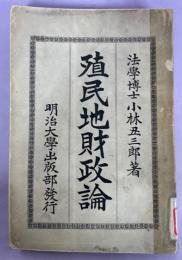 法學博士小林丑三郎著
殖民地財政論
明治大學出版部發行